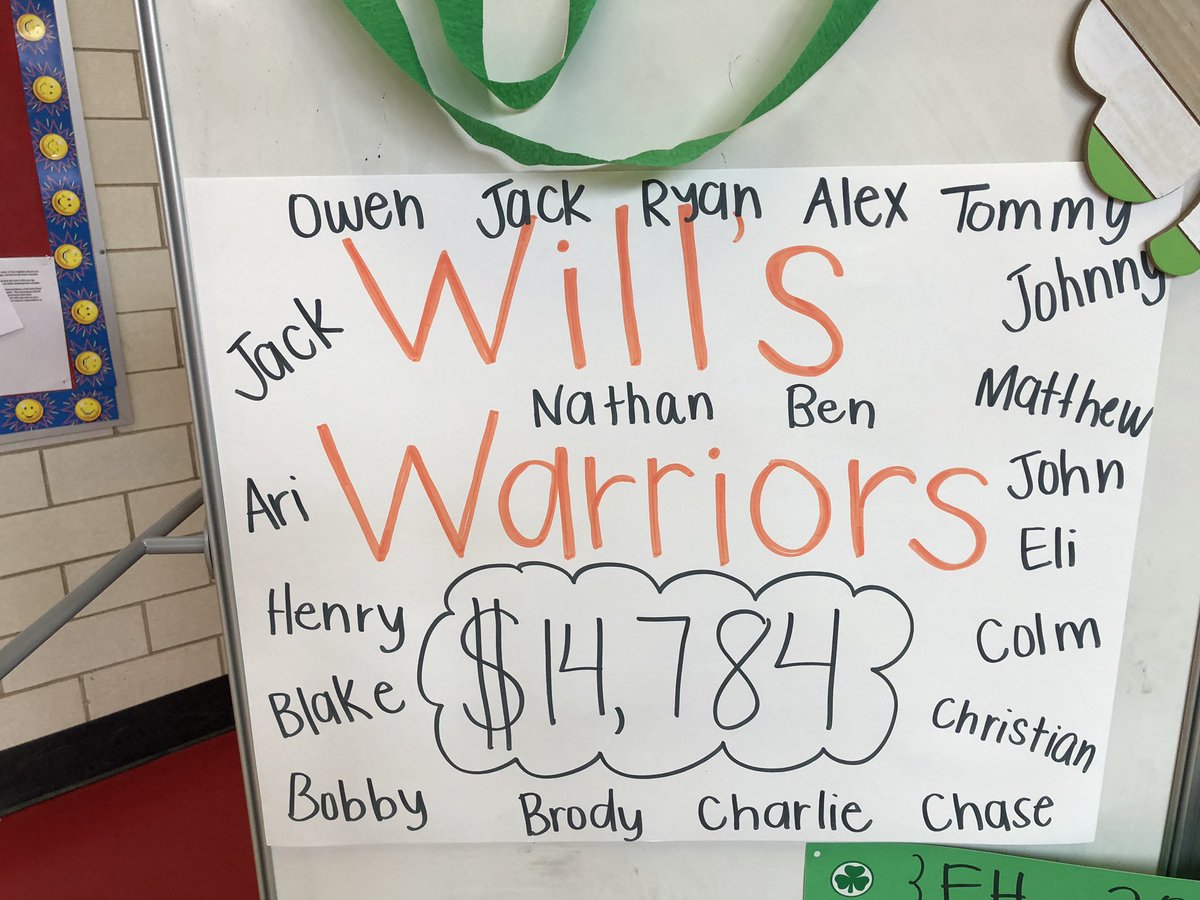 Owen Jack Ryan Alex Tommy
Will's
Johnny
Jack
Nathan Ben
Matthew
Warriors
John
Ari
Eli
Henry
$14,784
Colm
Blake
Christian
Bobby Brody Charlie Chase